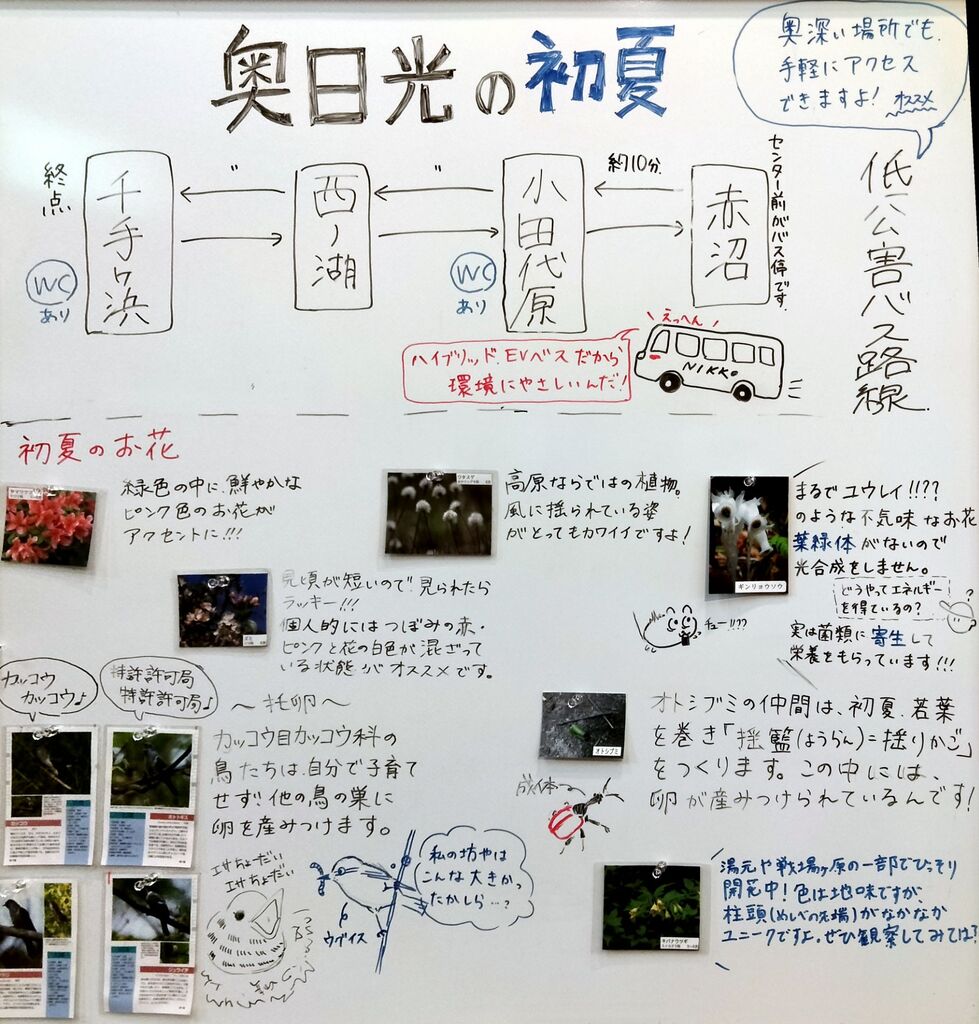 奥日光の初夏
奥深い場所でも、
手軽にアクセス
できますよ! オススメ
低公害バス路線
センター前がバス停です。
赤沼
約10分
小田代原
WC
あり
〃
西ノ湖
〃
千手ヶ浜
終点
WC
あり
えっへん
NIKKO
ハイブリッド、EVバスだから
環境にやさしいんだ!
初夏のお花
緑色の中に、鮮やかな
ピンク色のお花が
アクセントに!!!
ワタスゲ
高原ならではの植物。
風に揺られている姿
がとってもカワイイですよ!
ギンリョウソウ
まるでユウレイ!!??
のような不気味なお花
葉緑体がないので
光合成をしません。
どうやってエネルギー
を得ているの?
?
実は菌類に寄生して
栄養をもらっています!!!
チュー!!??
見頃が短いので、見られたら
ラッキー!!!
個人的にはつぼみの赤・
ピンクと花の白色が混ざって
いる状態がオススメです。
カッコウ
カッコウ♪
特許許可局
特許許可局♪
〜托卵〜
カッコウ目カッコウ科の
鳥たちは、自分で子育て
せず!他の鳥の巣に
卵を産みつけます。
カッコウ
ホトトギス
ジュウイチ
エサちょーだい
エサちょーだい
ウグイス
私の坊やは
こんな大きかっ
たかしら…?
オトシブミ
オトシブミの仲間は、初夏、若葉
を巻き「揺籃(ようらん)=揺りかご」
をつくります。この中には、
卵が産みつけられているんです!
成体→
キバナウツギ
湯元や戦場ヶ原の一部でひっそり
開花中!色は地味ですが、
柱頭(めしべの先端)がなかなか
ユニークですよ。ぜひ観察してみては?